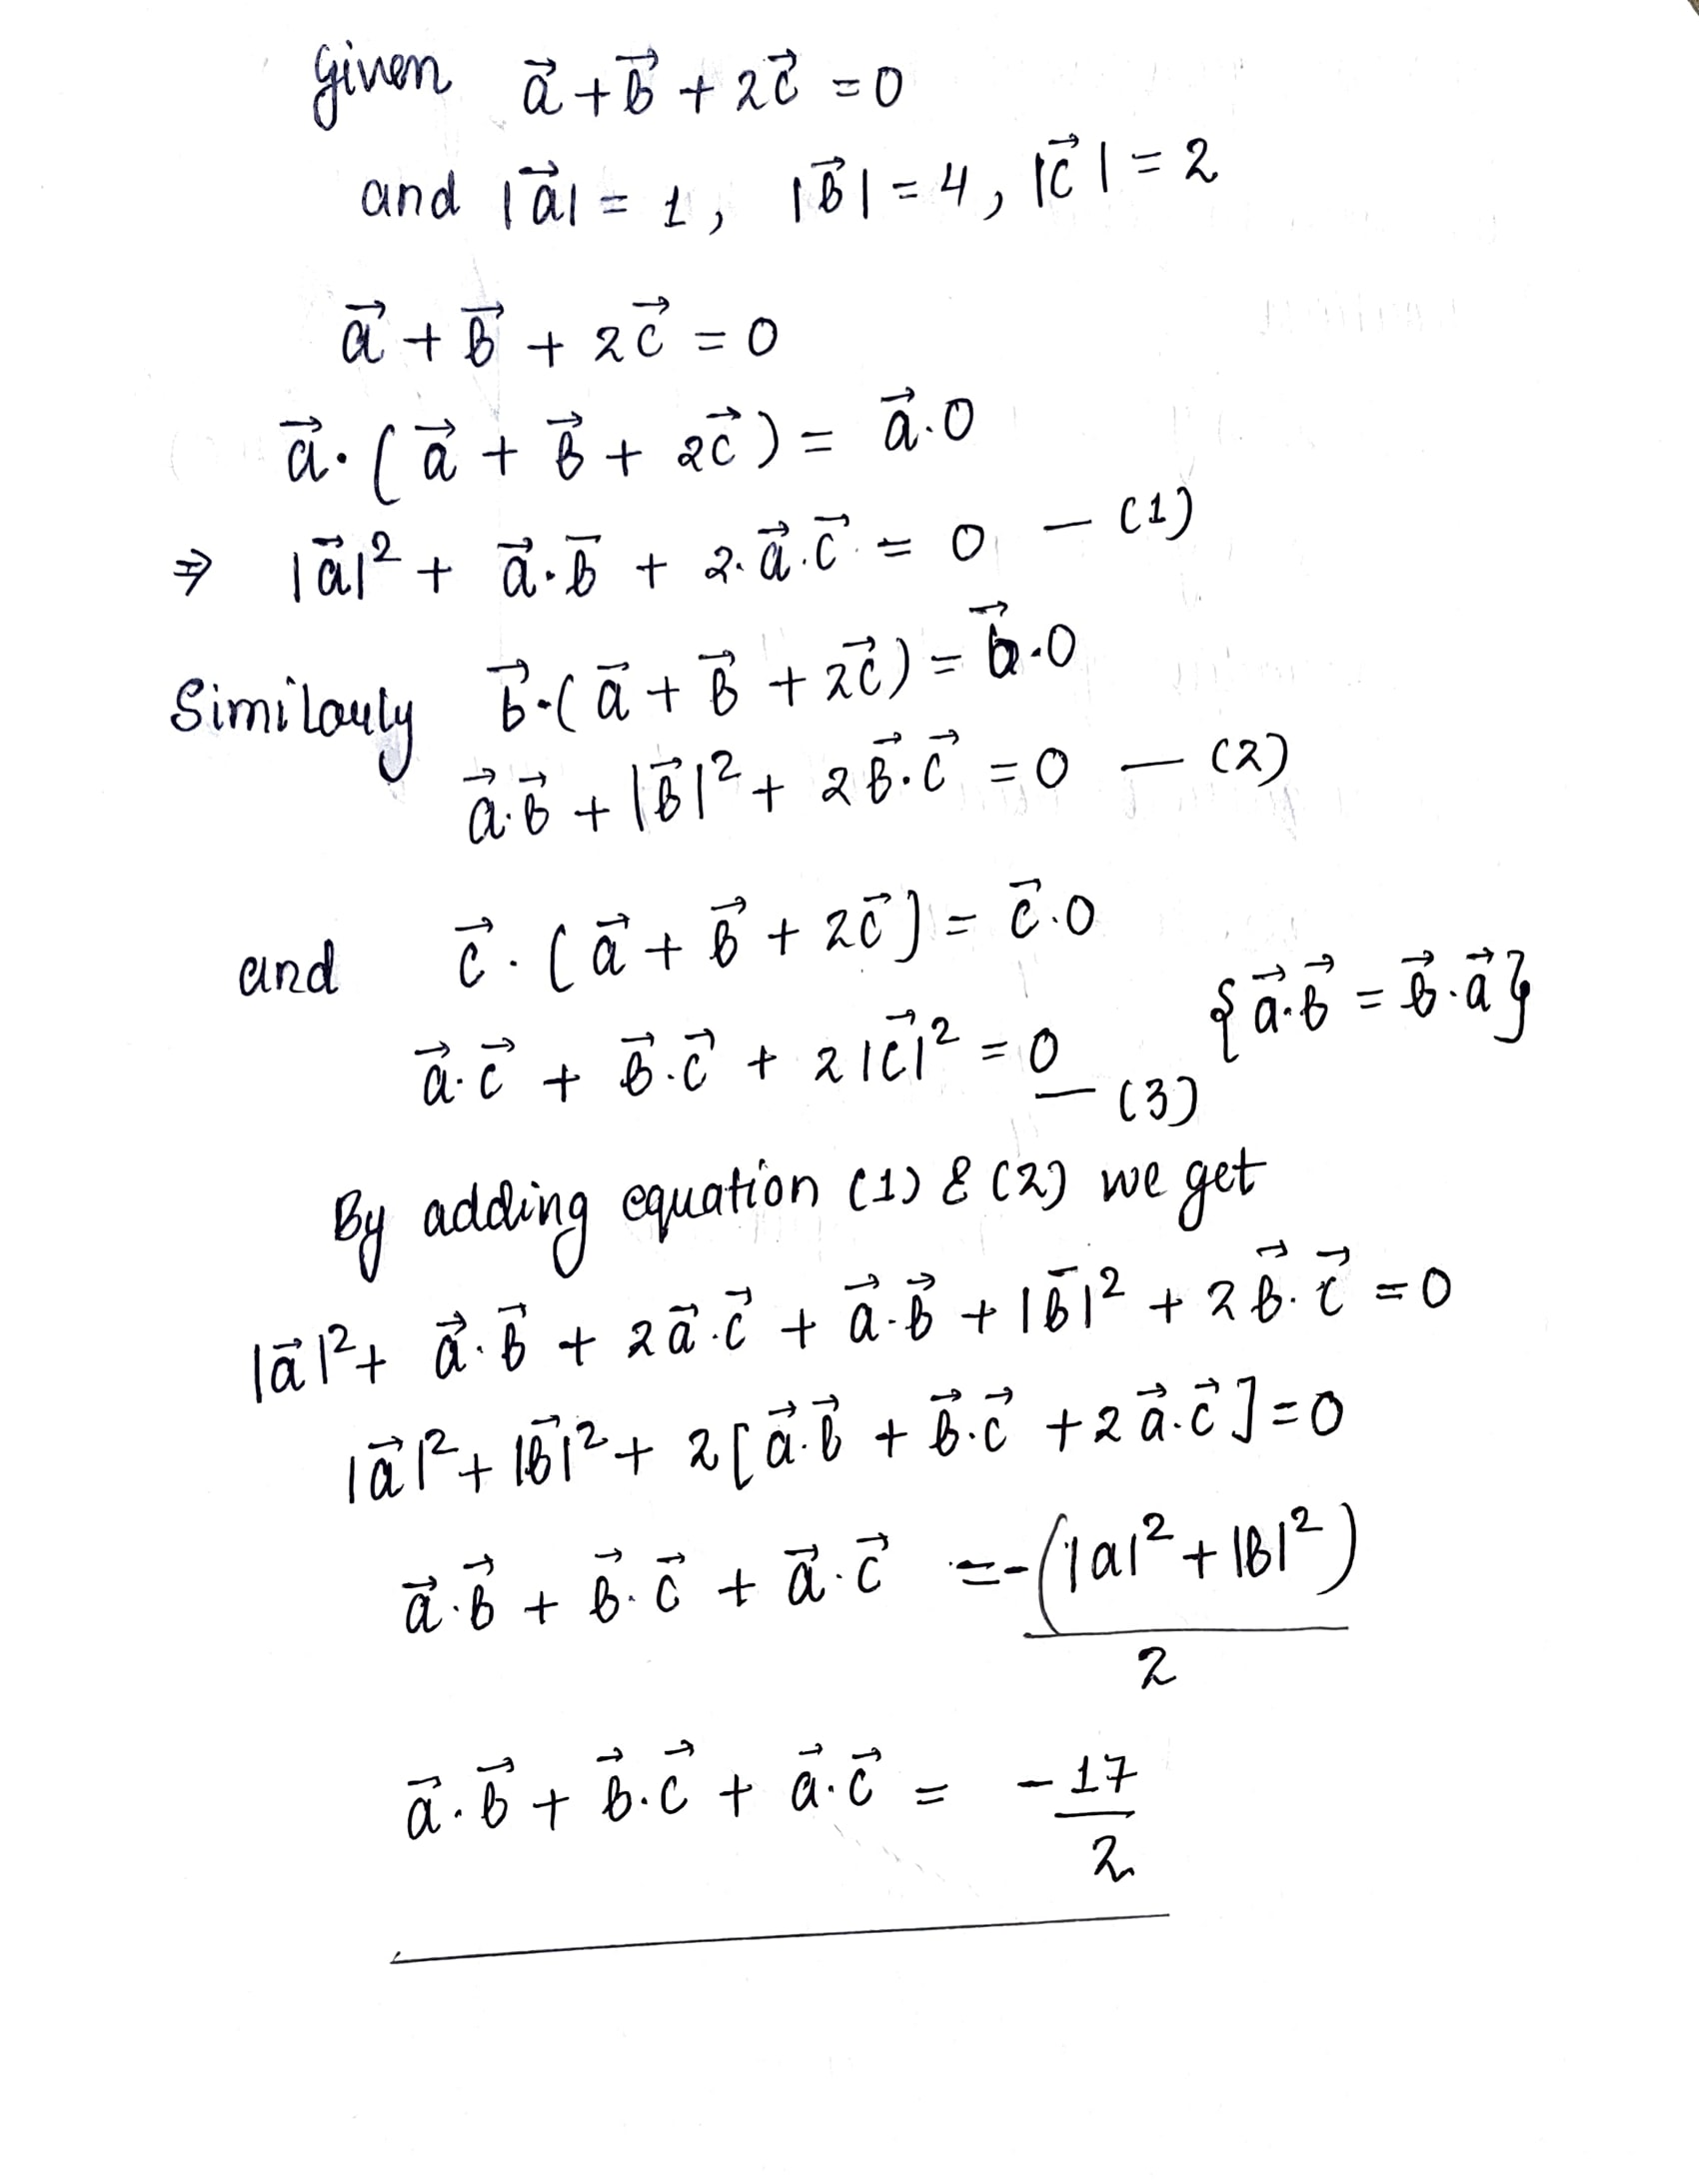 Given a⃗ + b⃗ + 2c⃗ = 0
and |a⃗| = 1, |b⃗| = 4, |c⃗| = 2
a⃗ + b⃗ + 2c⃗ = 0
a⃗ . (a⃗ + b⃗ + 2c⃗) = a⃗ . 0
⇒ |a⃗|² + a⃗ . b⃗ + 2. a⃗ . c⃗ = 0 — (1)
Similarly b⃗ . (a⃗ + b⃗ + 2c⃗) = b⃗ . 0
a⃗ . b⃗ + |b⃗|² + 2b⃗ . c⃗ = 0 — (2)
and c⃗ . [a⃗ + b⃗ + 2c⃗] = c⃗ . 0
{a⃗ . b⃗ = b⃗ . a⃗}
a⃗ . c⃗ + b⃗ . c⃗ + 2|c⃗|² = 0
— (3)
By adding equation (1) & (2) we get
|a⃗|² + a⃗ . b⃗ + 2a⃗ . c⃗ + a⃗ . b⃗ + |b⃗|² + 2b⃗ . c⃗ = 0
|a⃗|² + |b⃗|² + 2[a⃗ . b⃗ + b⃗ . c⃗ + 2a⃗ . c⃗] = 0
a⃗ . b⃗ + b⃗ . c⃗ + a⃗ . c⃗ = -(|a|² + |b|²)
2
a⃗ . b⃗ + b⃗ . c⃗ + a⃗ . c⃗ = - 17
2